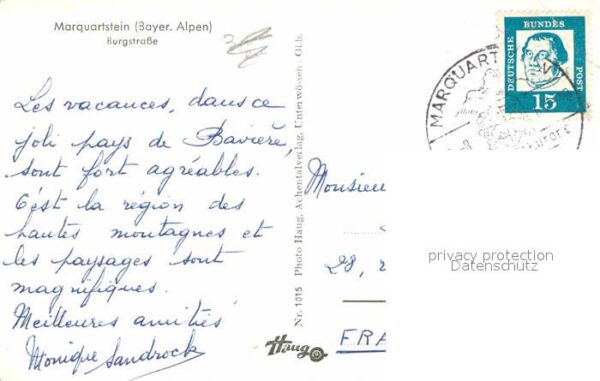 Marquartstein (Bayer. Alpen)
Burgstraße
Les vacances, dans ce
joli pays de Bavière,
sont fort agréables.
C'est la région des
hautes montagnes et
les paysages sont
magnifiques.
Meilleures amitiés
Monique Sandrock
Nr. 1015 Photo Haug, Achentalverlag, Unterwössen - Obb.
Haug
MARQUART
DEUTSCHE
BUNDES
POST
15
Monsieur
28,
FRA
privacy protection
Datenschutz